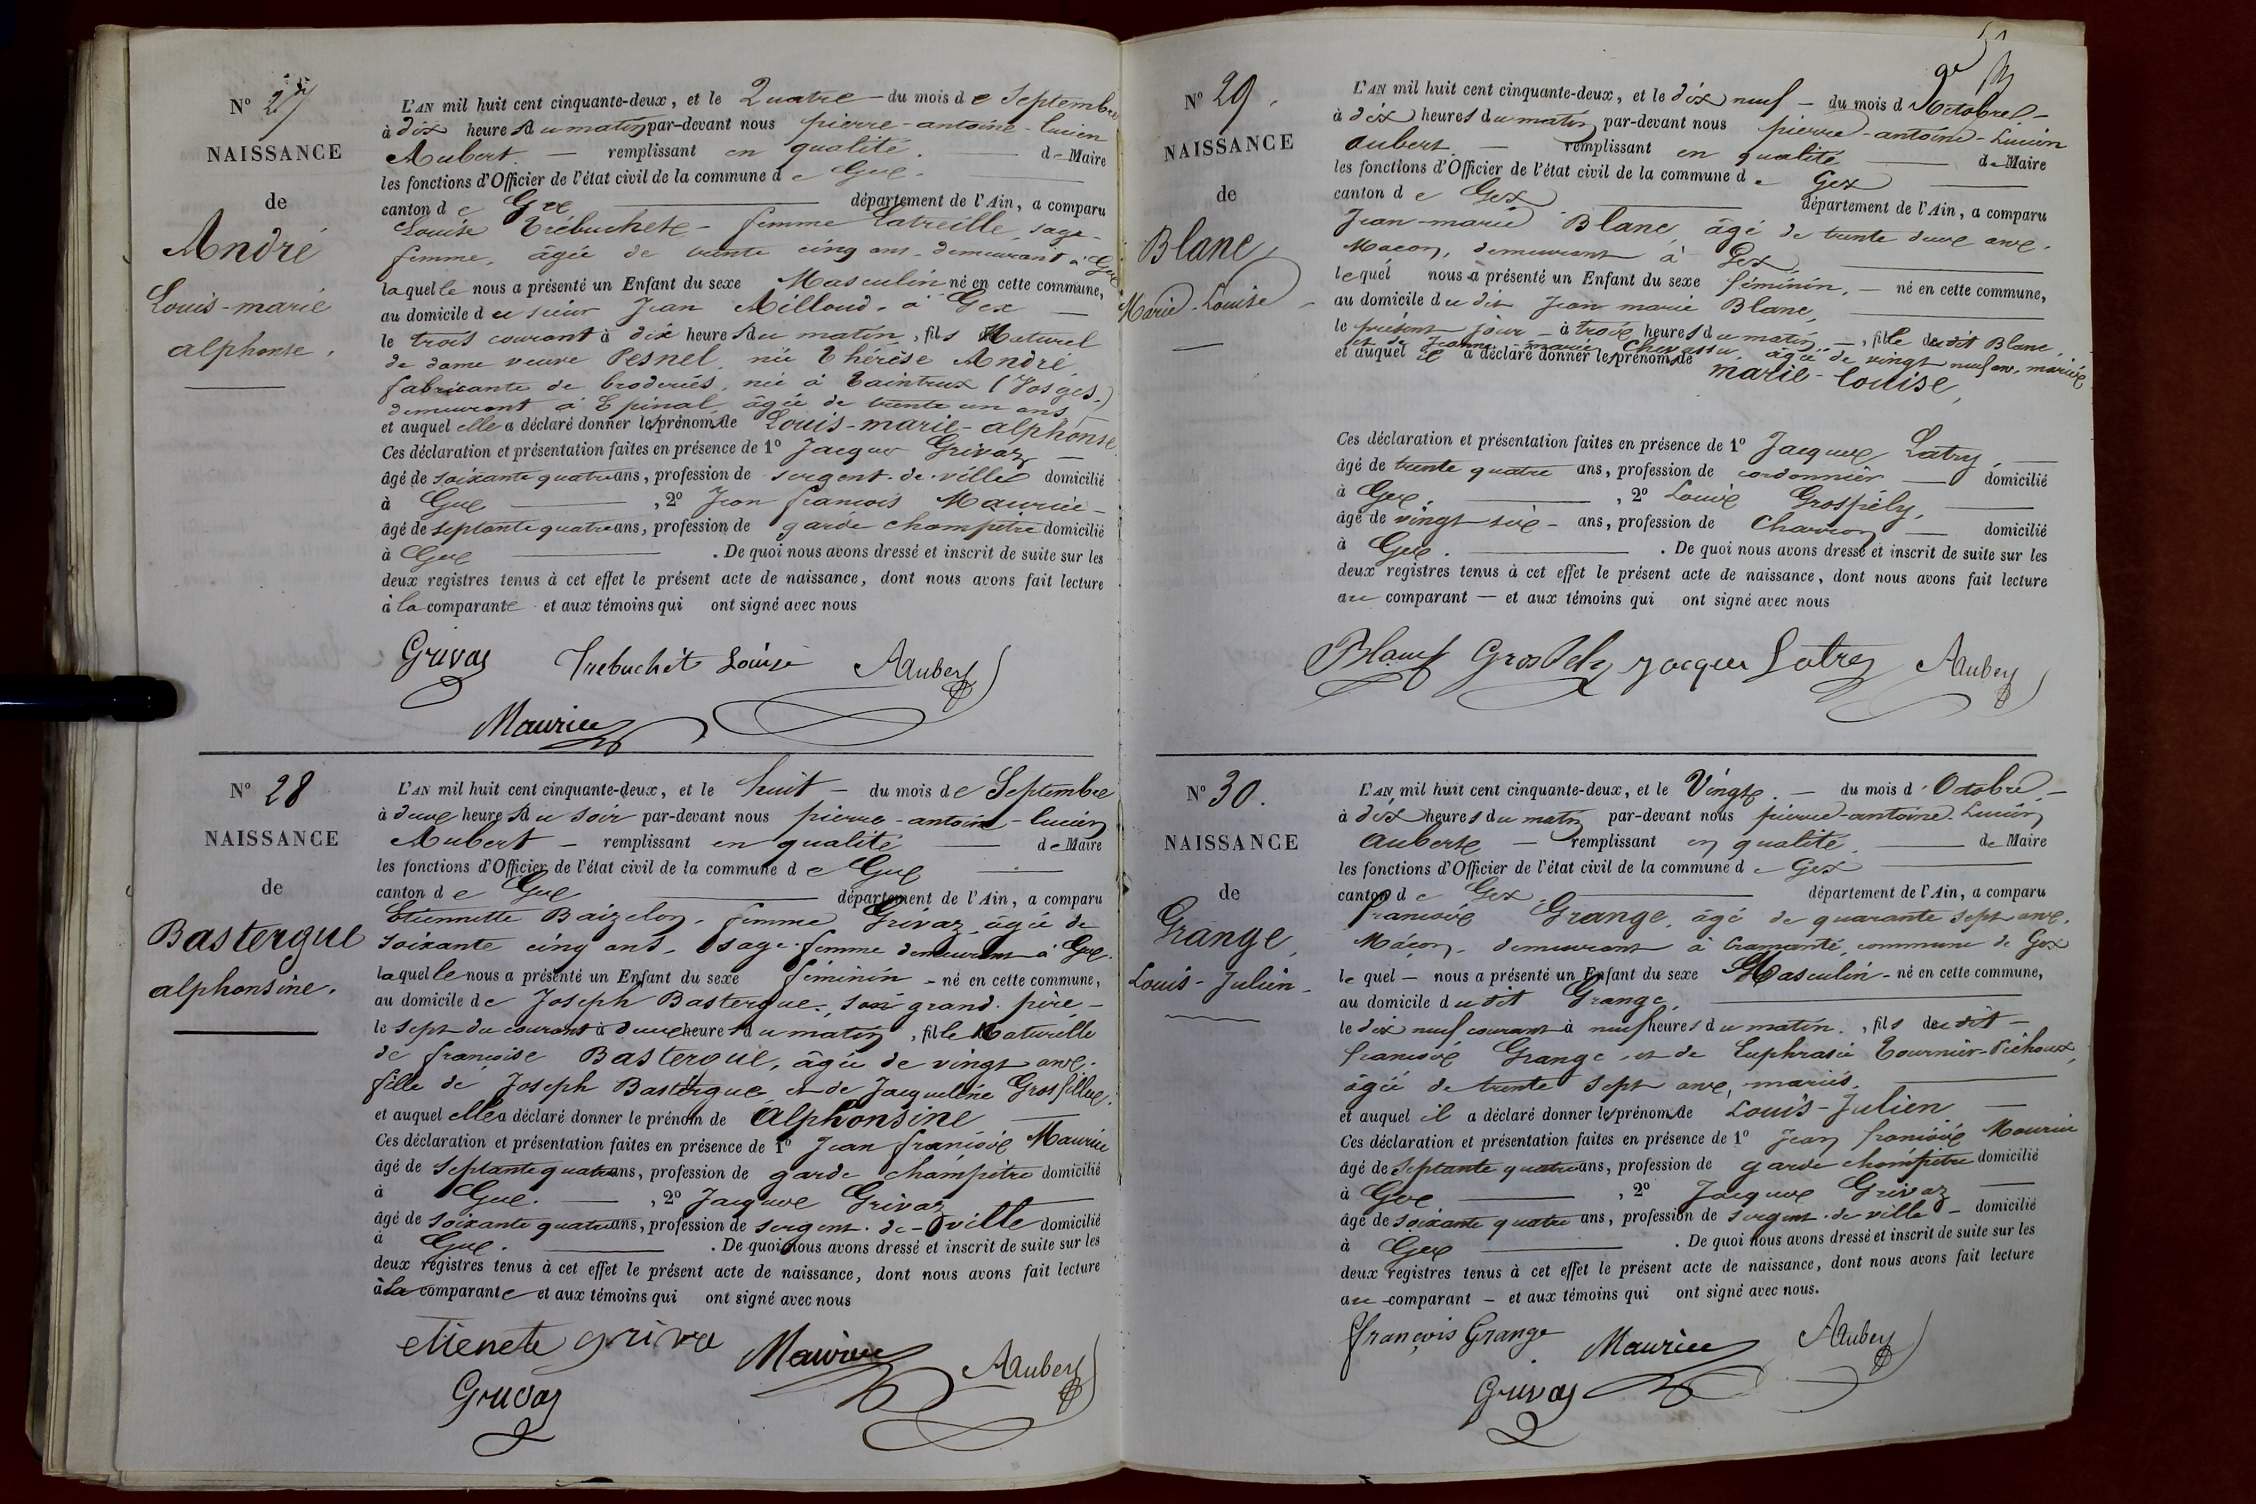 N° 27
NAISSANCE
de
André
Louis-marie
alphonse.
L'AN mil huit cent cinquante-deux, et le Quatre du mois de Septembre
à dix heures du matin par-devant nous pierre-antoine-lucien
Aubert. — remplissant en qualité. — de Maire
les fonctions d'Officier de l'état civil de la commune de Gex.
canton de Gex département de l'Ain, a comparu
Louise Trébuchet - femme Latreille, sage-
femme, âgée de trente cinq ans, demeurant à Gex
laquelle nous a présenté un Enfant du sexe Masculin né en cette commune,
au domicile du sieur Jean Milloud, à Gex
le trois courant à dix heures du matin, fils Naturel
de dame veuve Pesnel, née Thérèse André,
fabricante de broderies, née à Taintrux (Vosges.)
demeurant à Epinal, âgée de trente un ans
et auquel elle a déclaré donner les prénoms de Louis-marie-alphonse
Ces déclaration et présentation faites en présence de 1° Jacques Grivaz
âgé de soixante quatre ans, profession de sergent-de-ville domicilié
à Gex, 2° Jean françois Maurice
âgé de septante quatre ans, profession de garde champêtre domicilié
à Gex. De quoi nous avons dressé et inscrit de suite sur les
deux registres tenus à cet effet le présent acte de naissance, dont nous avons fait lecture
à la comparante et aux témoins qui ont signé avec nous
Grivaz Trebuchet Louise AAubert
Maurice
N° 28
NAISSANCE
de
Bastergue
alphonsine.
L'AN mil huit cent cinquante-deux, et le huit — du mois de Septembre
à deux heures du soir par-devant nous pierre-antoine-lucien
Aubert — remplissant en qualité — de Maire
les fonctions d'Officier de l'état civil de la commune de Gex
canton de Gex département de l'Ain, a comparu
Etiennette Baizelon, femme Grivaz, âgée de
soixante cinq ans, sage-femme demeurant à Gex.
laquelle nous a présenté un Enfant du sexe féminin - né en cette commune,
au domicile de Joseph Bastergue, son grand-père -
le sept du courant à deux heures du matin, fille Naturelle
de françoise Bastergue, âgée de vingt ans.
fille de Joseph Bastergue et de Jacqueline Grosfillex.
et auquel elle a déclaré donner le prénom de alphonsine
Ces déclaration et présentation faites en présence de 1° Jean françois Maurice
âgé de septante quatre ans, profession de garde champêtre domicilié
à Gex. —, 2° Jacques Grivaz
âgé de soixante quatre ans, profession de sergent-de-ville domicilié
à Gex. De quoi nous avons dressé et inscrit de suite sur les
deux registres tenus à cet effet le présent acte de naissance, dont nous avons fait lecture
à la comparante et aux témoins qui ont signé avec nous
etienete griva Maurice AAubert
Grivaz
N° 29.
NAISSANCE
de
Blanc,
Marie-Louise
L'AN mil huit cent cinquante-deux, et le dix neuf — du mois d'Octobre —
à dix heures du matin par-devant nous pierre-antoine-Lucien
aubert. — remplissant en qualité — de Maire
les fonctions d'Officier de l'état civil de la commune de Gex
canton de Gex département de l'Ain, a comparu
Jean-marie Blanc, âgé de trente deux ans.
Maçon, demeurant à Gex,
lequel nous a présenté un Enfant du sexe féminin, — né en cette commune,
au domicile du dit Jean marie Blanc,
le présent jour - à trois heures du matin —, fille du dit Blanc,
et de Jeanne marie Chevassu, âgée de vingt neuf ans, mariés
et auquel il a déclaré donner les prénoms de marie-louise,
Ces déclaration et présentation faites en présence de 1° Jacques Latry,
âgé de trente quatre ans, profession de cordonnier — domicilié
à Gex., 2° Louis Grospély,
âgé de vingt six - ans, profession de Charron — domicilié
à Gex. De quoi nous avons dressé et inscrit de suite sur les
deux registres tenus à cet effet le présent acte de naissance, dont nous avons fait lecture
au comparant — et aux témoins qui ont signé avec nous
Blanc Grospely jacques Latry AAubert
N° 30.
NAISSANCE
de
Grange,
Louis-Julien
L'AN mil huit cent cinquante-deux, et le Vingt. — du mois d'Octobre —
à dix heures du matin par-devant nous pierre-antoine-Lucien
aubert — remplissant en qualité — de Maire
les fonctions d'Officier de l'état civil de la commune de Gex
canton de Gex, département de l'Ain, a comparu
françois Grange, âgé de quarante sept ans,
Maçon, demeurant à Tramanté, commune de Gex
lequel — nous a présenté un Enfant du sexe Masculin - né en cette commune,
au domicile du dit Grange,
le dix neuf courant à neuf heures du matin., fils du dit —
françois Grange, et de Euphrasie Tournier-
âgée de trente sept ans, mariés.
et auquel il a déclaré donner les prénoms de Louis-Julien —
Ces déclaration et présentation faites en présence de 1° Jean françois Maurice
âgé de septante quatre ans, profession de garde champêtre domicilié
à Gex, 2° Jacques Grivaz
âgé de soixante quatre ans, profession de sergent-de-ville - domicilié
à Gex. De quoi nous avons dressé et inscrit de suite sur les
deux registres tenus à cet effet le présent acte de naissance, dont nous avons fait lecture
au comparant — et aux témoins qui ont signé avec nous.
françois Grange Maurice AAubert
Grivaz